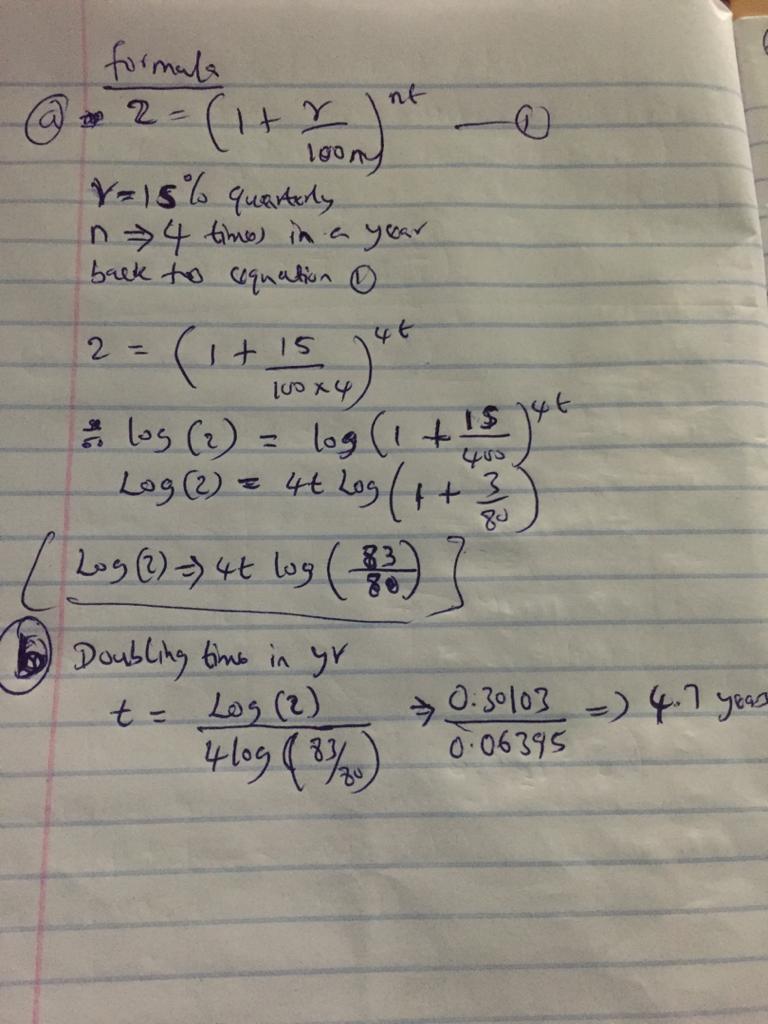 formula
(a) 2 = (1 + r/100n)^nt — (1)
r = 15% quarterly
n ⇒ 4 times in a year
back to equation (1)
2 = (1 + 15/100×4)^4t
log(2) = log(1 + 15/400)^4t
Log(2) = 4t Log(1 + 3/80)
[Log(2) ⇒ 4t log(83/80)]
(b) Doubling time in yr
t = Log(2)/4log(83/80) ⇒ 0.30103/0.06395 ⇒ 4.7 years